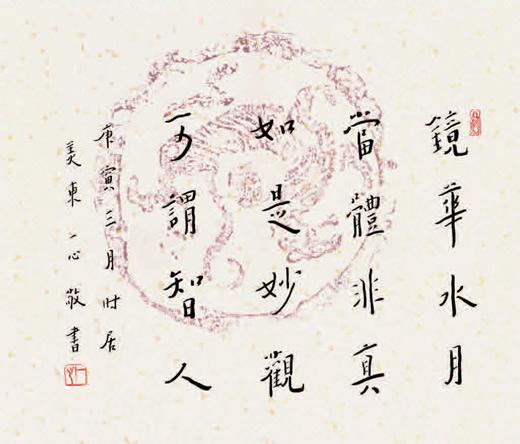 鏡華水月
當體非真
如是妙觀
可謂智人
庚寅三月時居
美東一心敬書